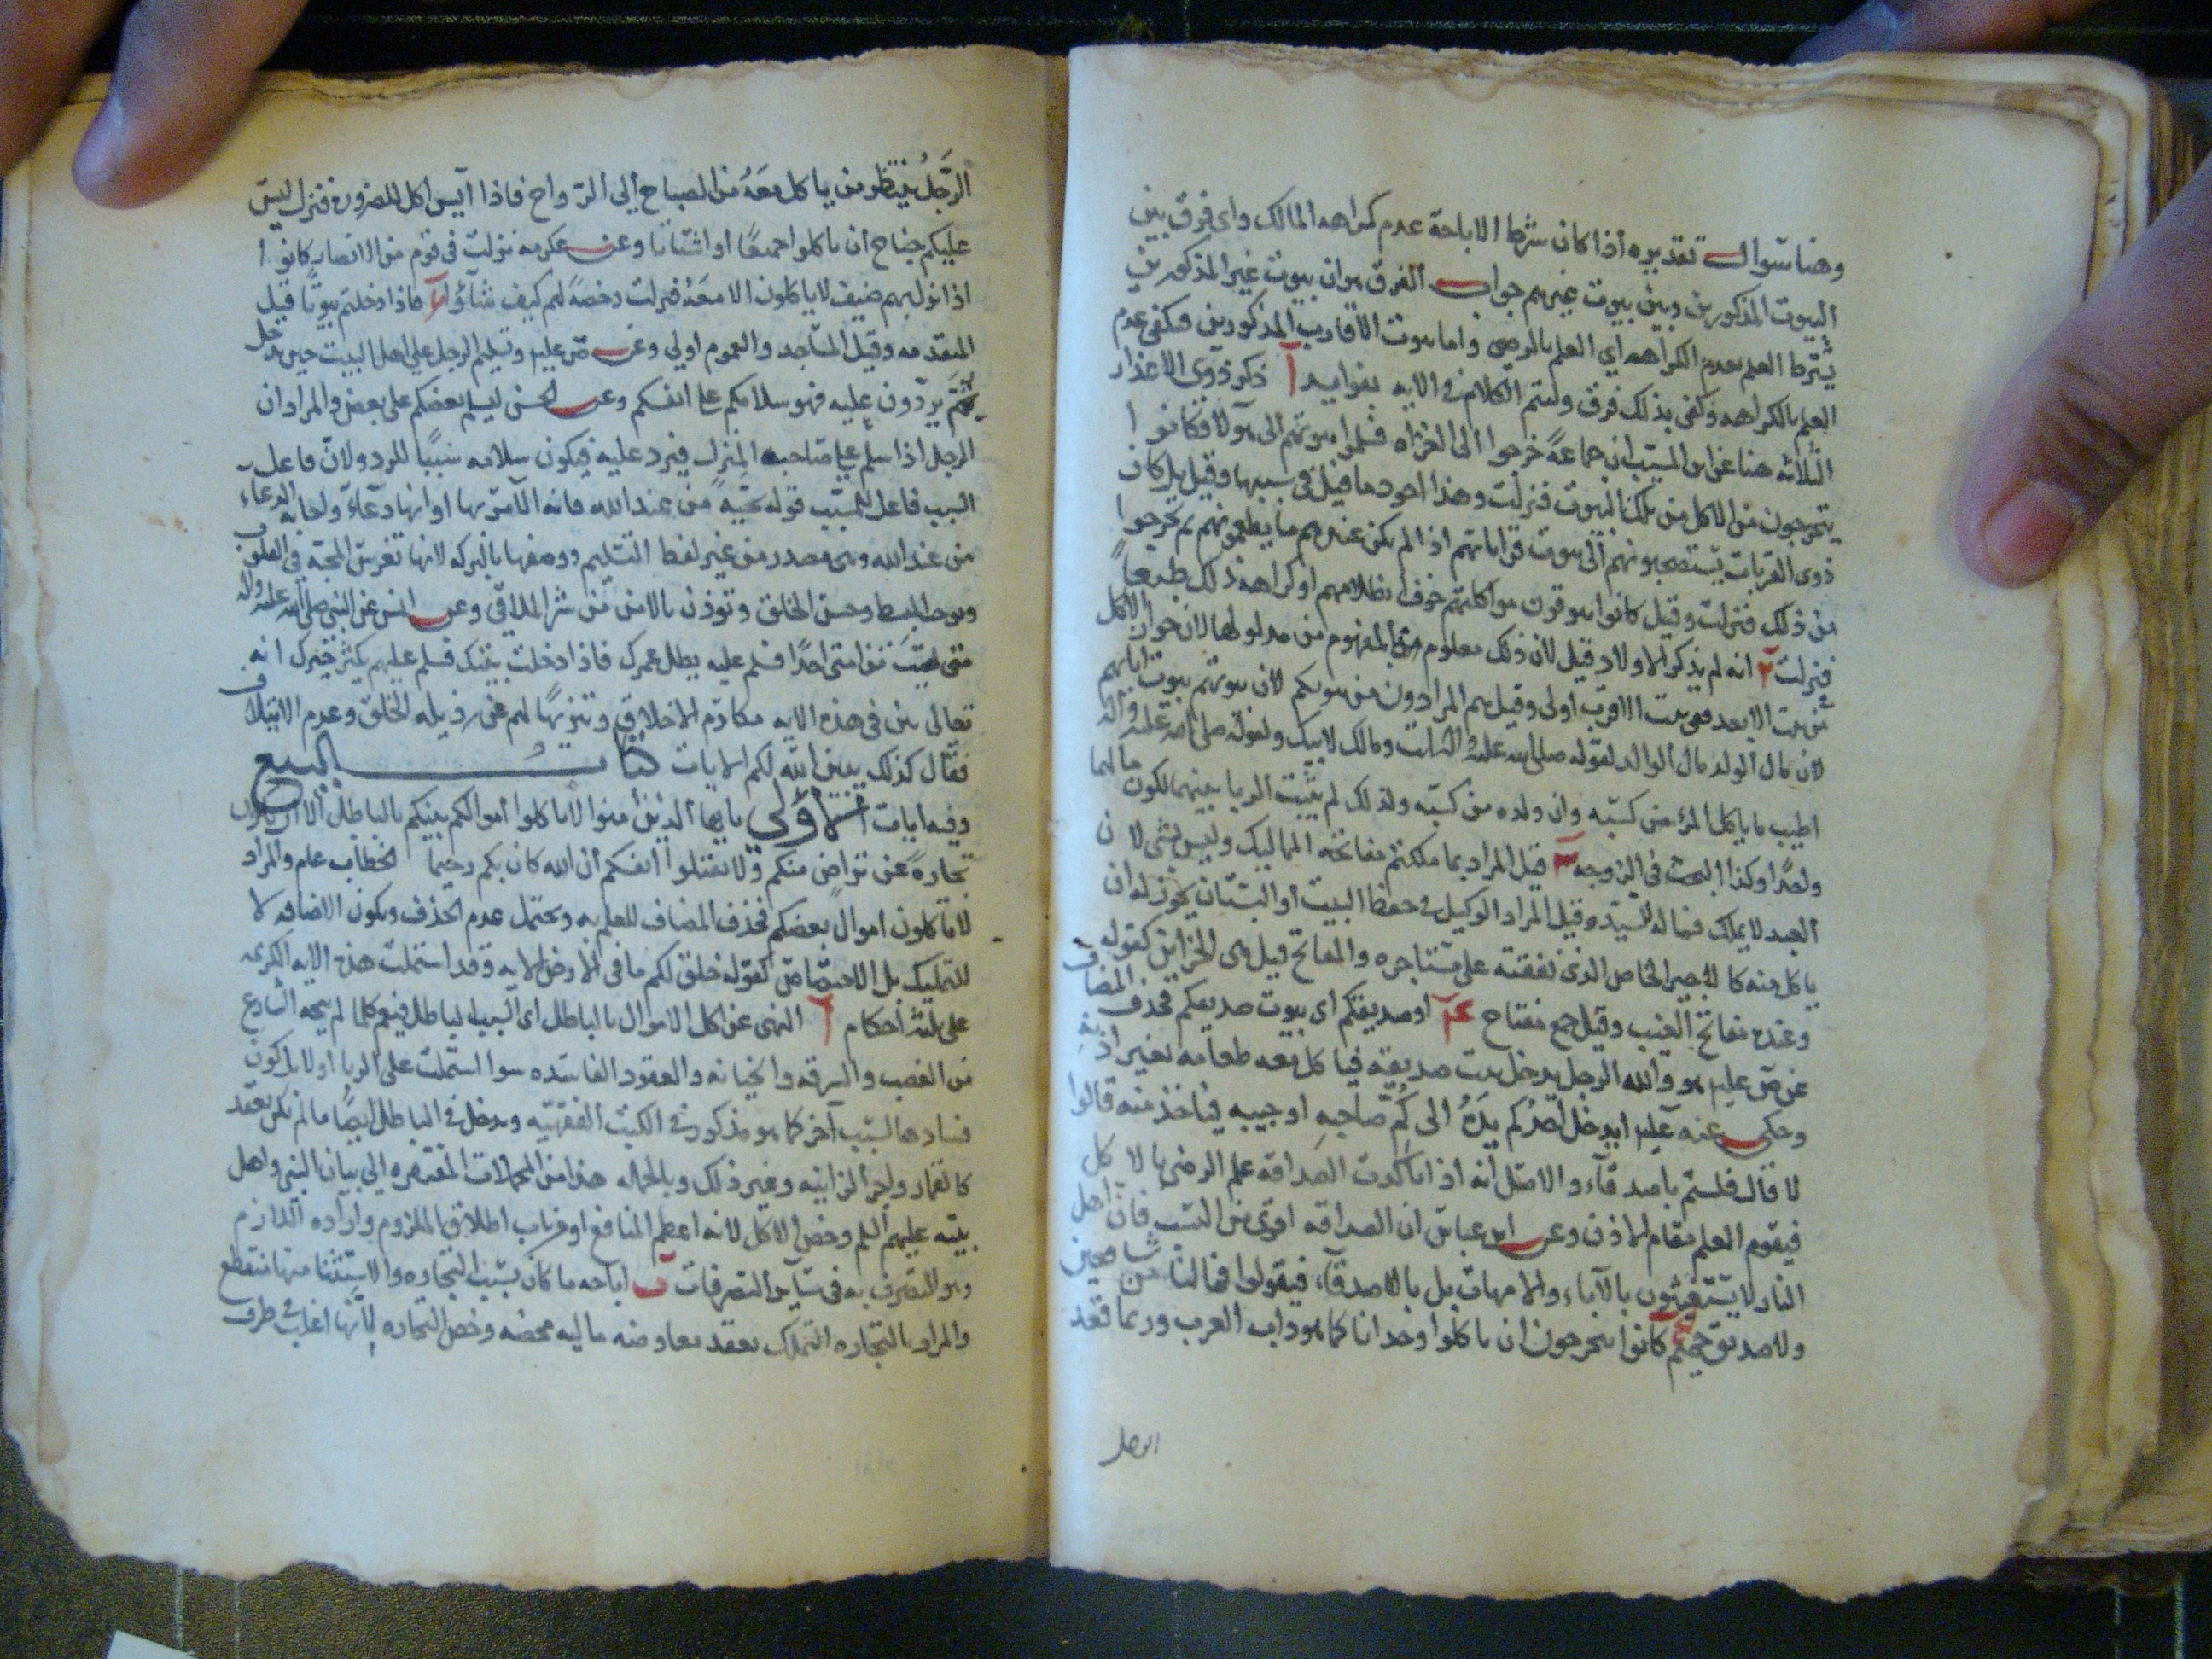 وهنا سوال تقديره اذا كان شرط الاباحة عدم كراهه المالك واى فرق بين
البيوت المذكورين وبين بيوت غيرهم جواب الفرق هو ان بيوت غير المذكورين
يشترط العلم بعدم الكراهه اي العلم بالرضى واما بيوت الاقارب المذكورين فيكفى عدم
العلم بالكراهه وكفى بذلك فرق ولنتم الكلام فى الايه بفوايد آ ذكر ذوى الاعذار
الثلاثه هنا عن ابن المسيب ان جماعةً خرجوا الى الغزاه فسلموا بيوتهم الى هولا فكانوا
يتحرجون من الاكل من تلك البيوت فنزلت وهذا اجود ما قيل فى سببها وقيل بل كان
ذوى القربات يستصحبونهم الى بيوت قراباتهم اذا لم يكن عندهم ما يطعمونهم ثم تحرجوا
من ذلك فنزلت وقيل كانوا يتوقون مواكلتهم خوف اظلامهم او كراهه ذلك طبعاً
فنزلت ٢ انه لم يذكر الاولاد قيل لان ذلك معلوم من المفهوم من مدلولها لان جواز الاكل
من بيت الابعد ففى بيت الاقرب اولى وقيل هم المرادون من بيوتكم لان بيوتهم بيوت ابايهم
لان مال الولد مال الوالد لقوله صلى الله عليه واله انت ومالك لابيك ولقوله صلى الله عليه واله
اطيب ما ياكل المرء من كسبه وان ولده من كسبه ولذلك لم يثبت الربا بينهما لكون مالهما
واحدًا وكذا البحث فى الزوجه ٣ قيل المراد بما ملكتم مفاتحه المماليك وليس بشى لان
العبد لا يملك فماله للسيد وقيل المراد الوكيل فى حفظ البيت او البستان يجوز له ان
ياكل منه كالاجير الخاص الذى نفقته على مستاجره والمفاتح قيل هى الخزاين كقوله
وعنده مفاتح الغيب وقيل جمع مفتاح ۴ او صديقكم اى بيوت صديقكم فحذف المضاف
عن ص عليه هو والله الرجل يدخل بيت صديقه فياكل معه طعامه بغير اذنه
وحكى عنه عليه ايدخل احدكم يدَهُ الى كُمّ صاحبِه او جيبه فياخذ منه قالوا
لا قال فلستم باصدقآء والاصل انه اذا تاكدت الصداقه علم الرضى بالاكل
فيقوم العلم مقام الاذن وعن ابن عباس ان الصداقه اقوى من النسب فان اهل
النار لا يستغيثون بالآباء والامهات بل بالاصدقآء فيقولوا فما لنا من شافعين
ولا صديق حميم كانوا يتحرجون ان ياكلوا وحدانا كما هو داب العرب وربما قعد
الرجل
الرَّجلُ ينتظر من ياكل معَهُ من الصباح الى الرّواح فاذا آيس اكل للضرورة فنزل ليسَ
عليكم جناح ان تاكلوا جميعًا او اشتاتا وعن عكرمه نزلت فى قوم من الانصار كانوا
اذا نزل بهم ضيف لا ياكلون الا معَهُ فنزلت رخصةً لهم كيف شآؤا فاذا دخلتم بيوتًا قيل
المتقدمه وقيل المساجد والعموم اولي وعن ص عليه وتسليم الرجل على اهل البيت حين يدخل
ثم يردّون عليه فهو سلامكم على انفسكم وعن الحسن ليسلم بعضكم على بعض والمراد ان
الرجل اذا سلم على صاحب المنزل فيرد عليه فيكون سلامه سببًا للرد ولان فاعل
السبب فاعل للمسبب قوله تحيّهً من عند الله فانه الآمر بها او انها دعآءً ولجابه الدعاء
من عند الله وهى مصدر من غير لفظ التسليم ووصفها بالبركه لانها تغرس المحبّه فى القلوب
وتوجب البسط وحسن الخلق وتوذن بالامن من شر الملاقى وعن انس عن النبى صلى الله عليه واله
متى لقيتَ من امتى احدًا فسلم عليه يطل عمرك فاذا دخلت بيتك فسلم عليهم يكثر خيرك انه
تعالى بين فى هذه الايه مكارم الاخلاق وتنزيهًا لهم عن رذيله الخلق وعدم الايتلاف
فقال كذلك يبين الله لكم الايات كتاب البيع
وفيه ايات الاولى يايها الذين امنوا لا تاكلوا اموالكم بينكم بالباطل الا ان تكون
تجارةً عن تراض منكم ولا تقتلوا انفسكم ان الله كان بكم رحيما الخطاب عام والمراد
لا تاكلون اموال بعضكم فحذف المضاف للعلم به ويحتمل عدم الحذف ويكون الاضافه لا
للتمليك بل الاختصاص كقوله خلق لكم ما فى الارض الايه وقد اشتملت هذه الايه الكريمه
على ثلثة احكام آ النهى عن اكل الاموال بالباطل اى السبب الباطل فيعم كلما لم يبحه الشارع
من الغصب والسرقه والخيانه والعقود الفاسده سوا اشتملت على الربا او لا بل كون
فسادها لسبب آخر كما هو مذكور فى الكتب الفقهيّه ويدخل فى الباطل ايضًا ما لم يكن بعقد
كالقمار واجر الزانيه وغير ذلك وبالجمله هذا من المجملات المفتقره الى بيان النبى واهل
بيته عليهم السلم وخص الاكل لانه اعظم المنافع او من باب اطلاق الملزوم واراده اللازم
وهو التصرف به فى سآير التصرفات ب اباحه ما كان بسبب التجاره والاستثنا منها منقطع
والمراد بالتجاره التملك بعقد معاوضه ماليه محضه وخص التجاره لانها اغلب فى طرف